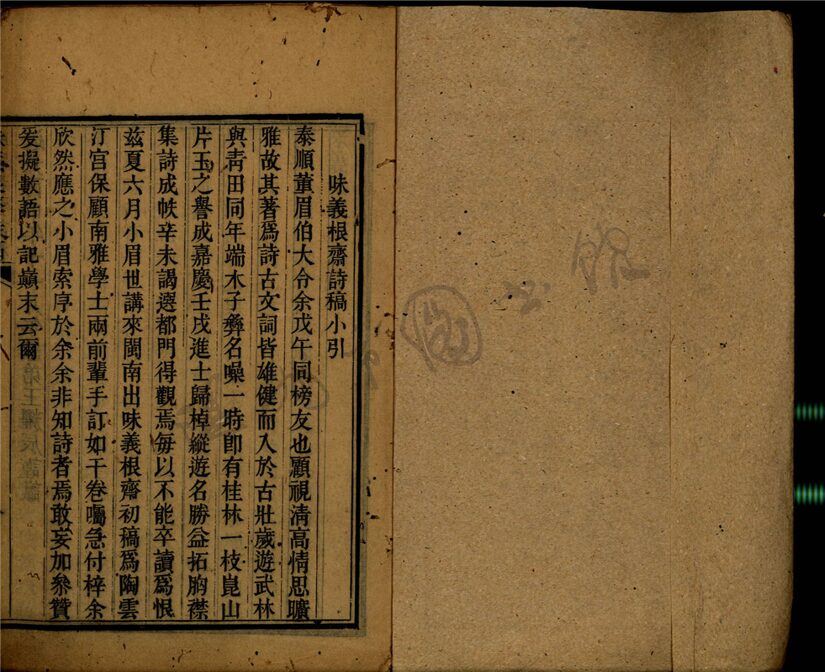 味義根齋詩稿小引
泰順董眉伯大令余戊午同榜友也顧視清高情思曠
雅故其著爲詩古文詞皆雄健而入於古壯歲遊武林
與青田同年端木子彝名噪一時即有桂林一枝崑山
片玉之譽成嘉慶壬戌進士歸棹縱遊名勝益拓胸襟
集詩成帙辛未謁選都門得觀焉每以不能卒讀爲恨
茲夏六月小眉世講來閩南出味義根齋初稿爲陶雲
汀宮保顧南雅學士兩前輩手訂如干卷囑急付梓余
欣然應之小眉索序於余余非知詩者焉敢妄加參贊
爰擬數語以記巔末云爾